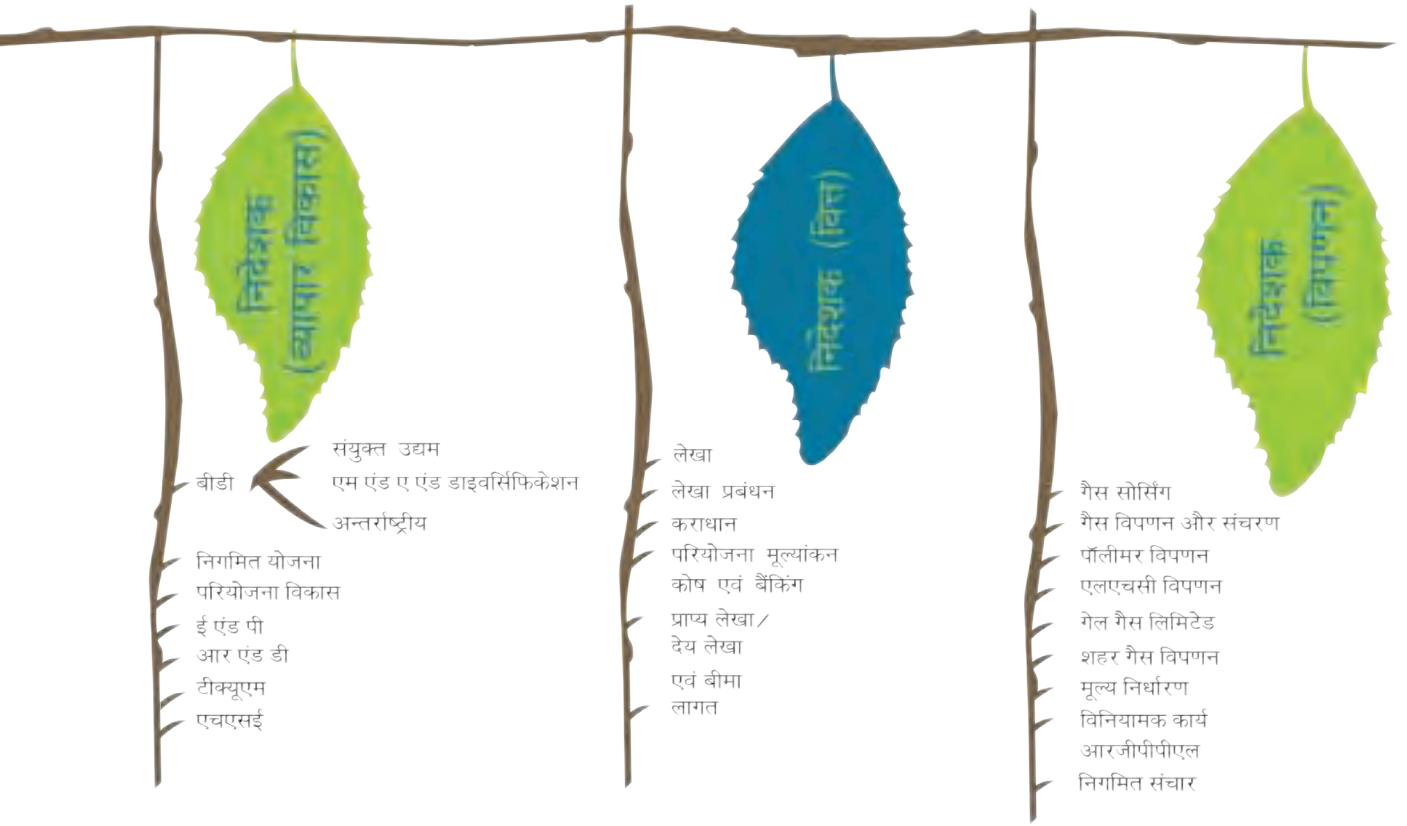 निदेशक
(व्यापार विकास)
बीडी
संयुक्त उद्यम
एम एंड ए एंड डाइवर्सिफिकेशन
अन्तर्राष्ट्रीय
निगमित योजना
परियोजना विकास
ई एंड पी
आर एंड डी
टीक्यूएम
एचएसई
निदेशक (वित्त)
लेखा
लेखा प्रबंधन
कराधान
परियोजना मूल्यांकन
कोष एवं बैंकिंग
प्राप्य लेखा/
देय लेखा
एवं बीमा
लागत
निदेशक
(विपणन)
गैस सोर्सिंग
गैस विपणन और संचरण
पॉलीमर विपणन
एलएचसी विपणन
गेल गैस लिमिटेड
शहर गैस विपणन
मूल्य निर्धारण
विनियामक कार्य
आरजीपीपीएल
निगमित संचार